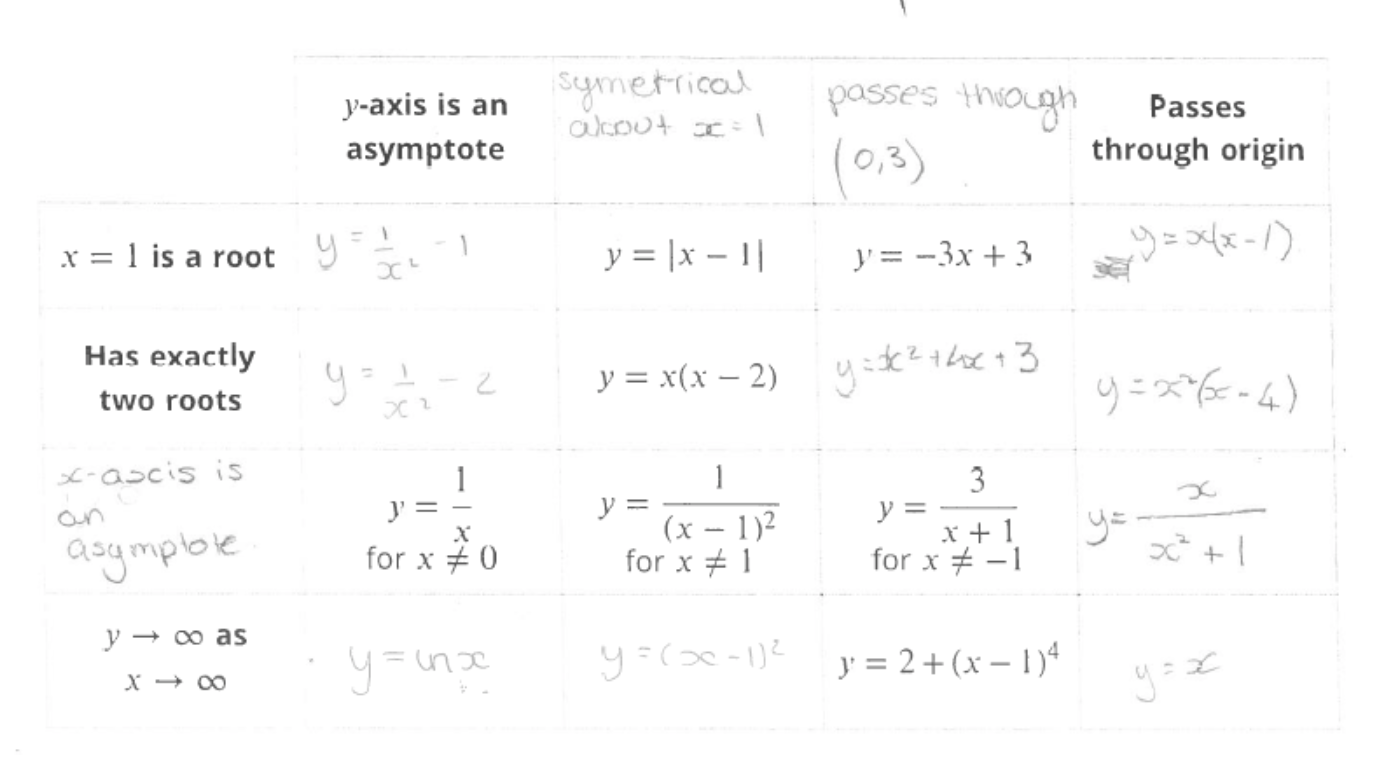 y-axis is an
asymptote
symetrical
about x = 1
passes through
(0,3)
Passes
through origin
x = 1 is a root
y = 1/x² - 1
y = |x − 1|
y = −3x + 3
y = x(x - 1)
Has exactly
two roots
y = 1/x² - 2
y = x(x − 2)
y = x² + 4x + 3
y = x²(x - 4)
x-axcis is
an
asymptote
y = 1/x
for x ≠ 0
y = 1/(x − 1)²
for x ≠ 1
y = 3/(x + 1)
for x ≠ −1
y = x/(x² + 1)
y → ∞ as
x → ∞
y = lnx
y = (x - 1)²
y = 2 + (x − 1)⁴
y = x